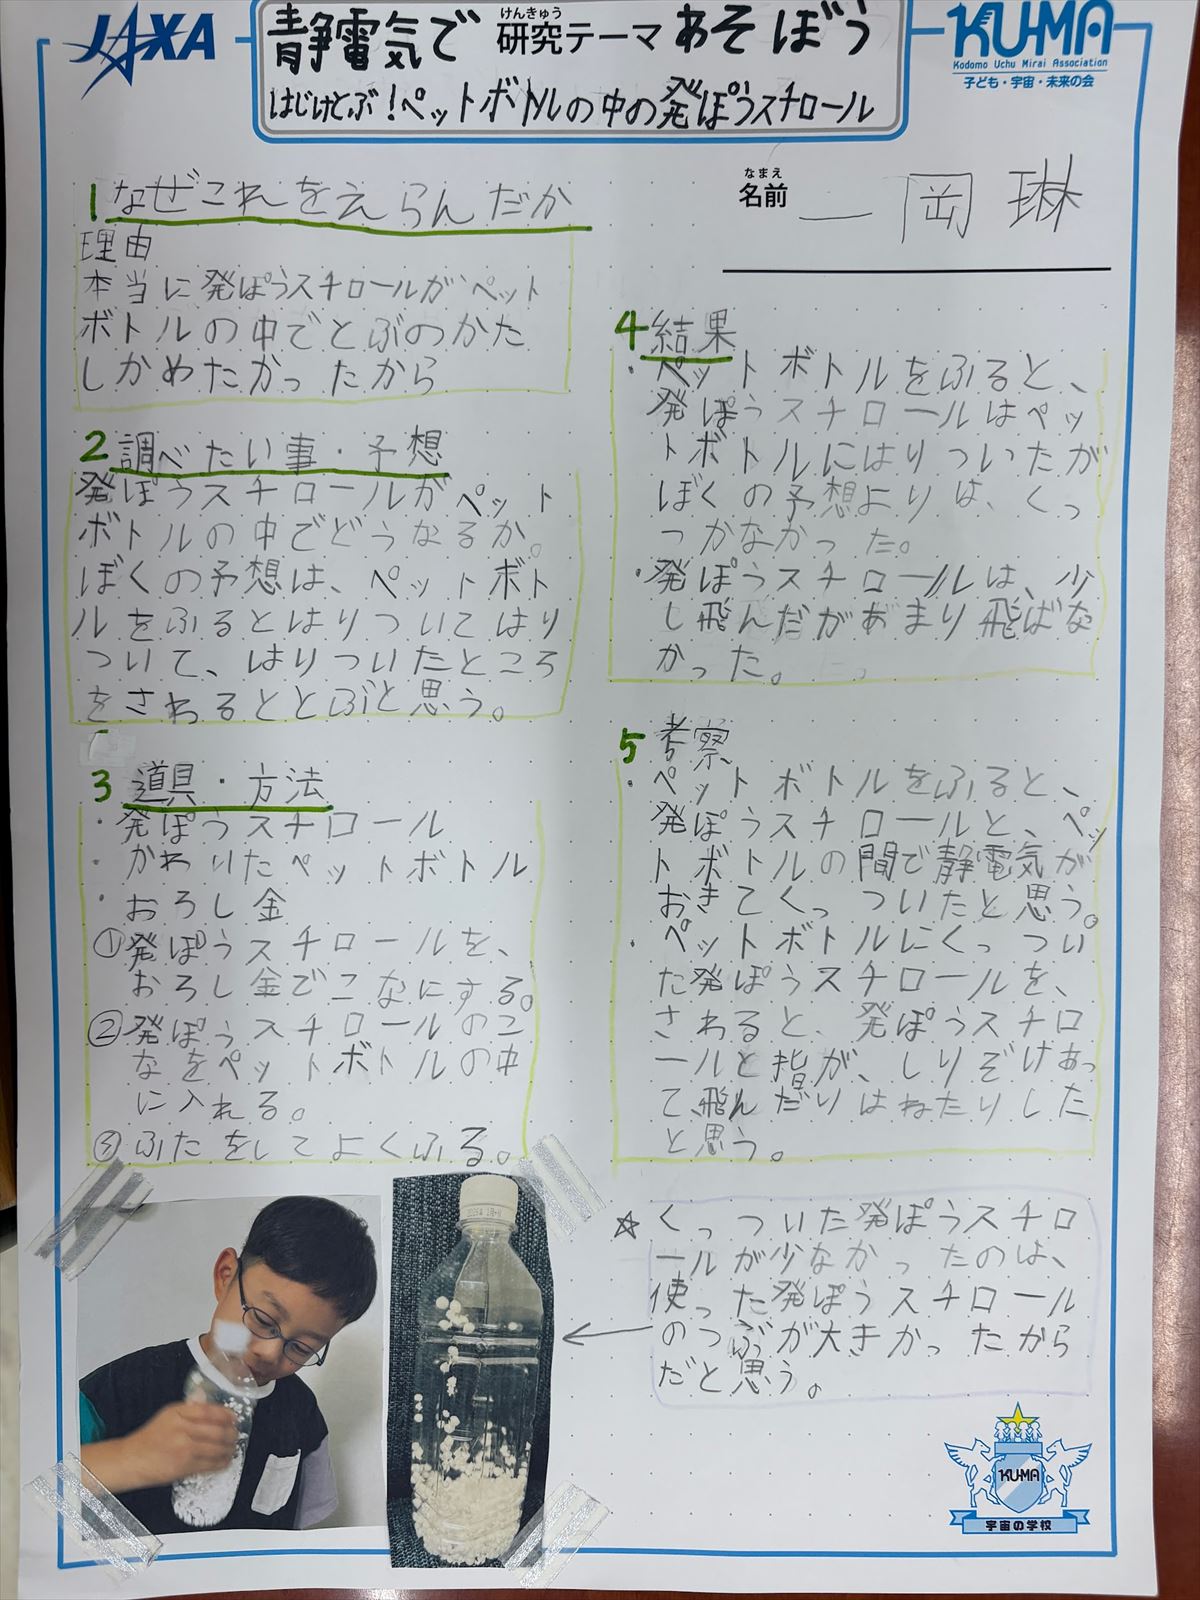 JAXA
静電気で 研究テーマ あそぼう
けんきゅう
はじけとぶ！ペットボトルの中の発ぽうスチロール
KU-MA
Kodomo Uchu Mirai Association
子ども・宇宙・未来の会
なまえ
名前 二岡 琳
1 なぜこれをえらんだか
理由
本当に発ぽうスチロールがペット
ボトルの中でとぶのかた
しかめたかったから
2 調べたい事・予想
発ぽうスチロールがペット
ボトルの中でどうなるか。
ぼくの予想は、ペットボト
ルをふるとはりついてはり
ついて、はりついたところ
をさわるととぶと思う。
3 道具・方法
・発ぽうスチロール
・かわいたペットボトル
・おろし金
①発ぽうスチロールを、
おろし金でこなにする。
②発ぽうスチロールのこ
なをペットボトルの中
に入れる。
③ふたをしてよくふる。
4 結果
・ペットボトルをふると、
発ぽうスチロールはペッ
トボトルにはりついたが
ぼくの予想よりは、くっ
つかなかった。
・発ぽうスチロールは、少
し飛んだがあまり飛ばな
かった。
5 考察
・ペットボトルをふると、
発ぽうスチロールと、ペッ
トボトルの間で静電気が
おきてくっついたと思う。
・ペットボトルにくっつい
た発ぽうスチロールを、
さわると、発ぽうスチロ
ールと指が、しりぞけあっ
て飛んだりはねたりした
と思う。
☆くっついた発ぽうスチロ
ールが少なかったのは、
使った発ぽうスチロール
のつぶが大きかったから
だと思う。
KU-MA
宇宙の学校